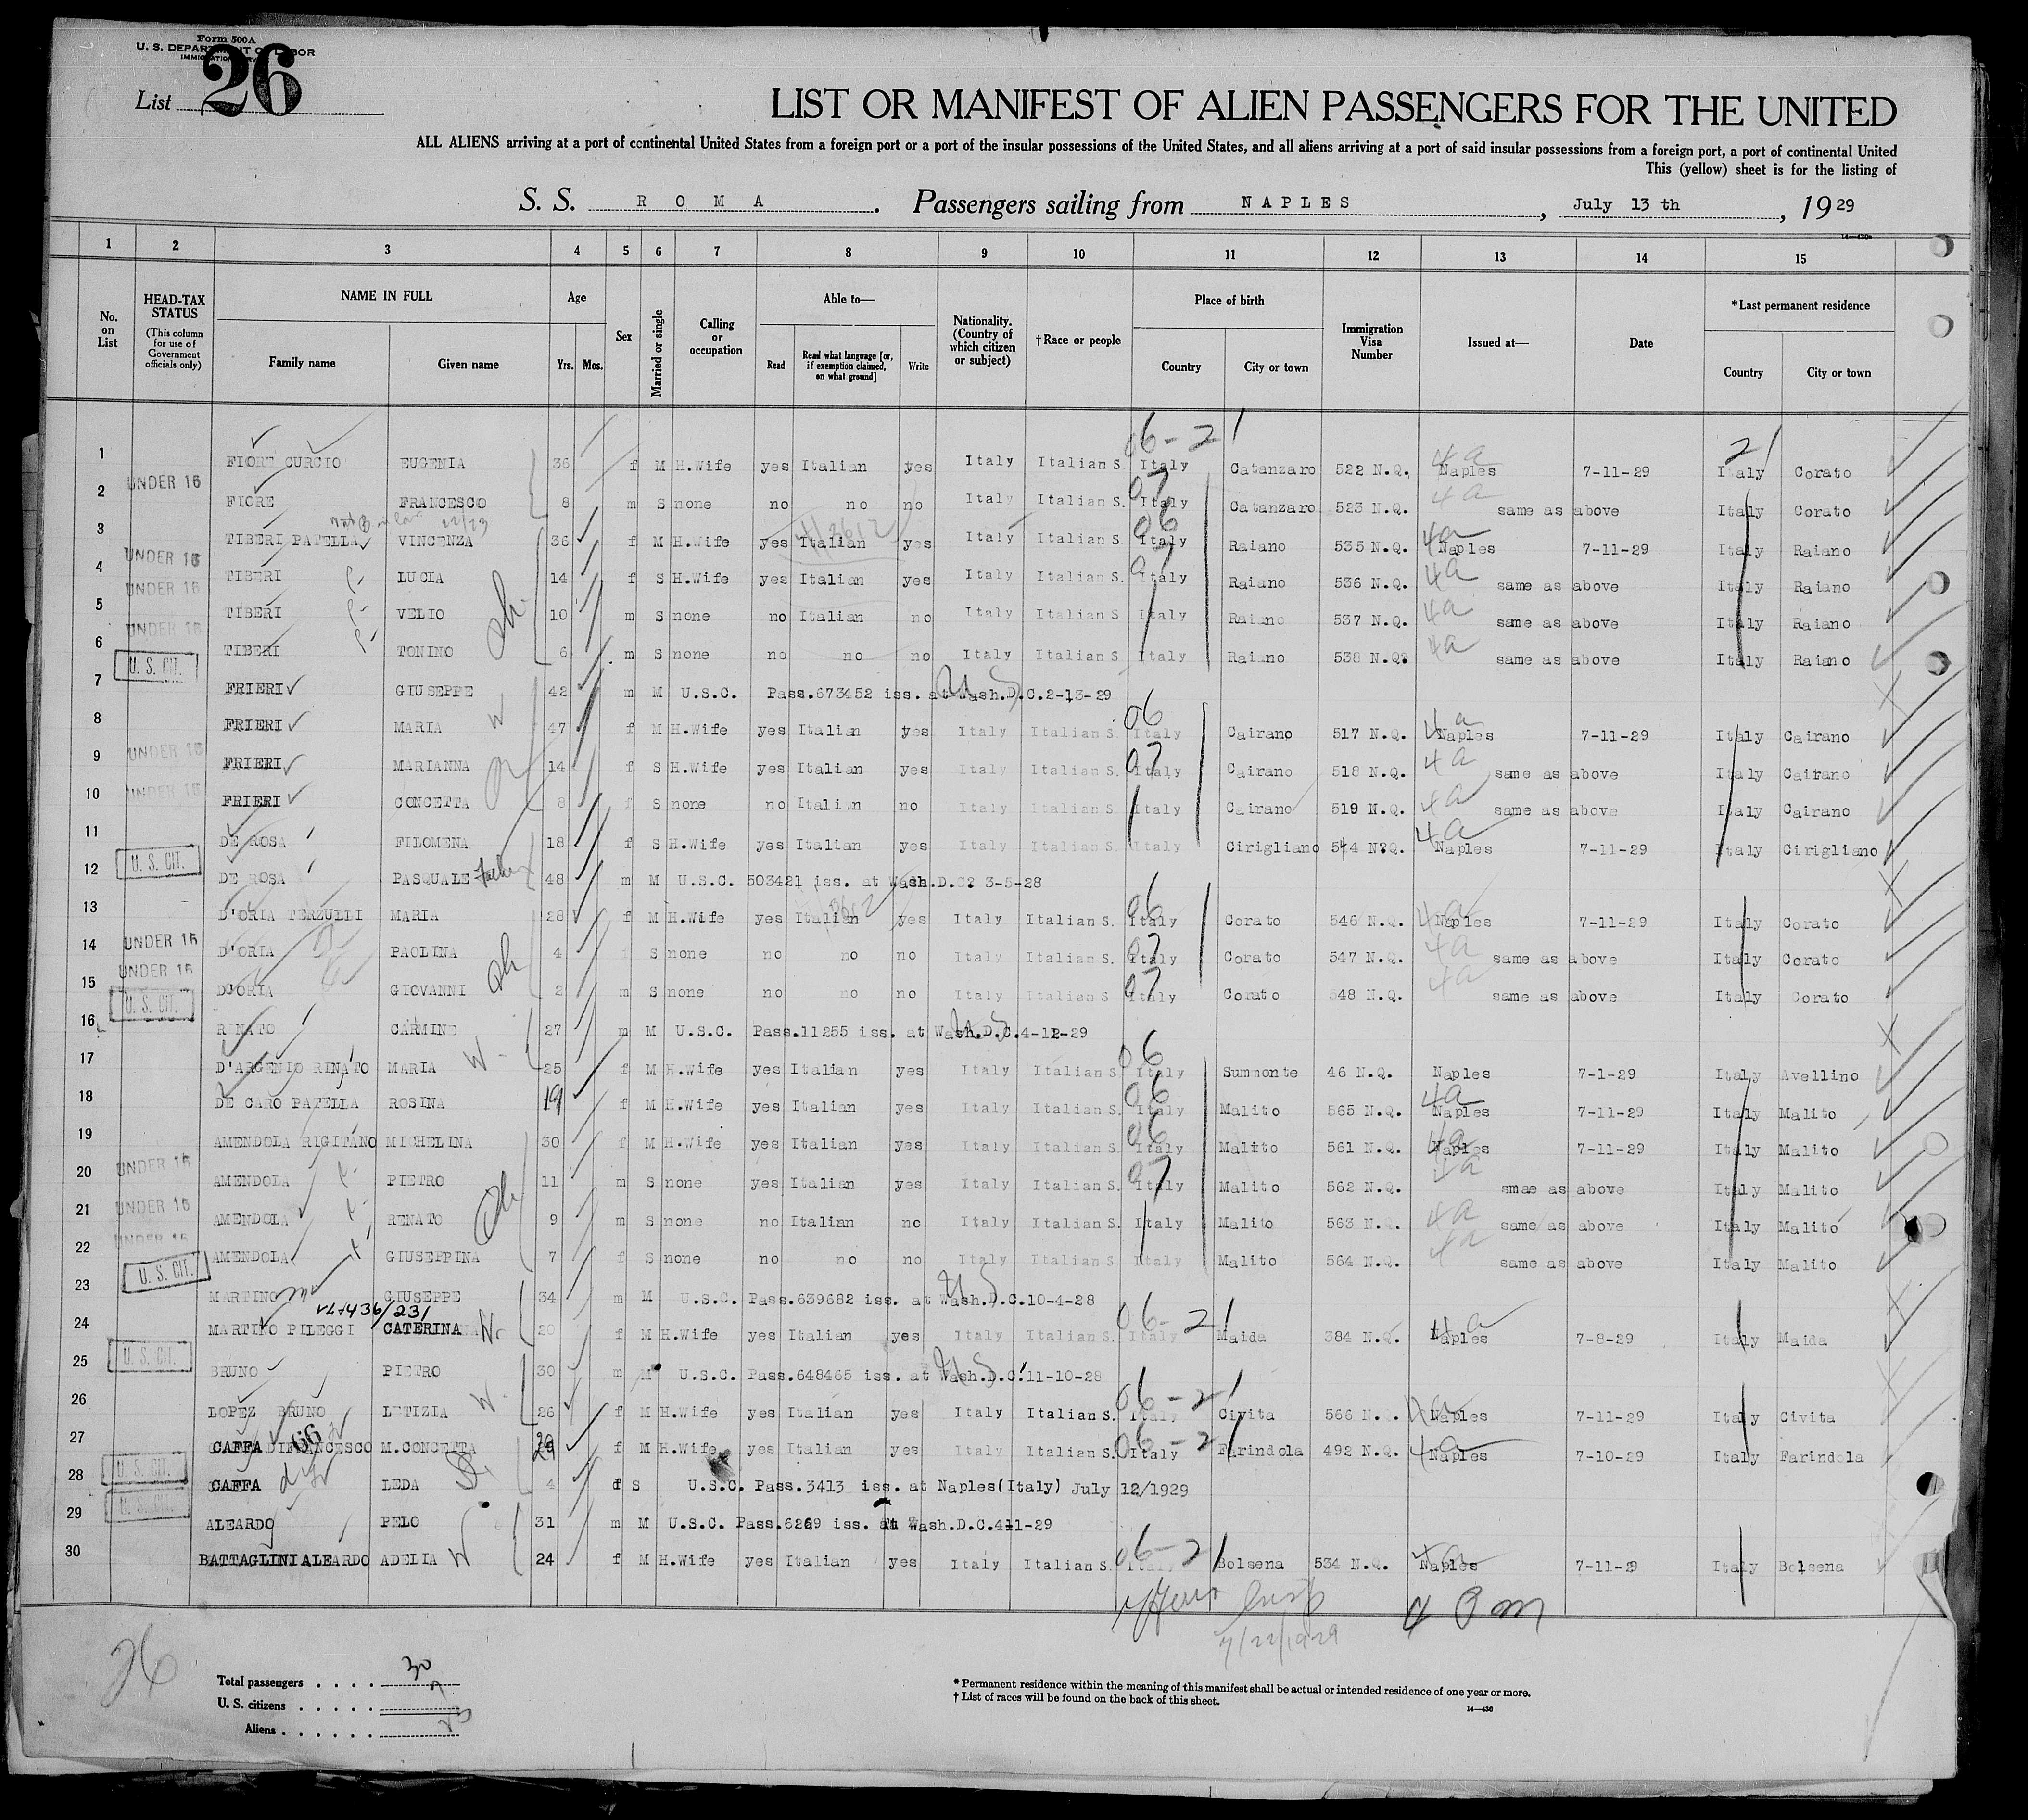 Form 500A
U. S. DEPARTMENT OF LABOR
IMMIGRATION SERVICE
List 26
LIST OR MANIFEST OF ALIEN PASSENGERS FOR THE UNITED
ALL ALIENS arriving at a port of continental United States from a foreign port or a port of the insular possessions of the United States, and all aliens arriving at a port of said insular possessions from a foreign port, a port of continental United
This (yellow) sheet is for the listing of
S. S. ROMA. Passengers sailing from NAPLES, July 13 th, 19 29
1 2 3 4 5 6 7 8 9 10 11 12 13 14 15
No. on List
HEAD-TAX STATUS (This column for use of Government officials only)
NAME IN FULL
Family name Given name
Age
Yrs. Mos.
Sex
Married or single
Calling or occupation
Able to—
Read
Read what language [or, if exemption claimed, on what ground]
Write
Nationality. (Country of which citizen or subject)
†Race or people
Place of birth
Country City or town
Immigration Visa Number
Issued at—
Date
*Last permanent residence
Country City or town
06-21 21
1 FIORE CURCIO EUGENIA 36 f M H.Wife yes Italian yes Italy Italian S. Italy Catanzaro 522 N.Q. 4a Naples 7-11-29 Italy Corato
2 UNDER 16 FIORE FRANCESCO 8 m S none no no no Italy Italian S. 07 Italy Catanzaro 523 N.Q. 4a same as above Italy Corato
3 TIBERI PATELLA VINCENZA 36 f M H.Wife yes Italian yes Italy Italian S. 06 Italy Raiano 535 N.Q. 4a Naples 7-11-29 Italy Raiano
4 UNDER 16 TIBERI LUCIA 14 f S H.Wife yes Italian yes Italy Italian S. 07 Italy Raiano 536 N.Q. 4a same as above Italy Raiano
5 UNDER 16 TIBERI VELIO 10 m S none no Italian no Italy Italian S. Italy Raiano 537 N.Q. 4a same as above Italy Raiano
6 UNDER 16 TIBERI TONINO 6 m S none no no no Italy Italian S. Italy Raiano 538 N.Q? 4a same as above Italy Raiano
7 U. S. CIT. FRIERI GIUSEPPE 42 m M U.S.C. Pass.673452 iss. at Wash.D.C.2-13-29
8 FRIERI MARIA 47 f M H.Wife yes Italian yes Italy Italian S. 06 Italy Cairano 517 N.Q. 4a Naples 7-11-29 Italy Cairano
9 UNDER 16 FRIERI MARIANNA 14 f S H.Wife yes Italian yes Italy Italian S. 07 Italy Cairano 518 N.Q. 4a same as above Italy Cairano
10 UNDER 16 FRIERI CONCETTA 8 f S none no Italian no Italy Italian S. Italy Cairano 519 N.Q. 4a same as above Italy Cairano
11 DE ROSA FILOMENA 18 f S H.Wife yes Italian yes Italy Italian S. Italy Cirigliano 544 N?Q. 4a Naples 7-11-29 Italy Cirigliano
12 U. S. CIT. DE ROSA PASQUALE Father 48 m M U.S.C. 503421 iss. at Wash.D.C? 3-5-28
13 D'ORIA TERZULLI MARIA 28 f M H.Wife yes Italian yes Italy Italian S. 06 Italy Corato 546 N.Q. 4a Naples 7-11-29 Italy Corato
14 UNDER 16 D'ORIA PAOLINA 4 S none no no no Italy Italian S. 07 Italy Corato 547 N.Q. 4a same as above Italy Corato
15 UNDER 16 D'ORIA GIOVANNI 2 m S none no no no Italy Italian S 07 Italy Corato 548 N.Q. 4a same as above Italy Corato
16 U. S. CIT. RENATO CARMINE 27 m M U.S.C. Pass.11255 iss. at Wash.D.C.4-12-29
17 D'ARGENIO RINATO MARIA W. 25 f M H.Wife yes Italian yes Italy Italian S 06 Italy Summonte 46 N.Q. Naples 7-1-29 Italy Avellino
18 DE CARO PATELLA ROSINA 19 f M H.Wife yes Italian yes Italy Italian S. 06 Italy Malito 565 N.Q. 4a Naples 7-11-29 Italy Malito
19 AMENDOLA RIGITANO MICHELINA 30 f M H.Wife yes Italian yes Italy Italian S. 06 Italy Malito 561 N.Q. 4a Naples 7-11-29 Italy Malito
20 UNDER 16 AMENDOLA PIETRO 11 m S none yes Italian yes Italy Italian S. 07 Italy Malito 562 N.Q. 4a smae as above Italy Malito
21 UNDER 16 AMENDOLA RENATO 9 m S none no Italian no Italy Italian S. Italy Malito 563 N.Q. 4a same as above Italy Malito
22 UNDER 16 AMENDOLA GIUSEPPINA 7 f S none no no no Italy Italian S. Italy Malito 564 N.Q. 4a same as above Italy Malito
23 U. S. CIT. MARTINO GIUSEPPE 34 m M U.S.C. Pass.639682 iss. at Wash.D.C.10-4-28
24 MARTINO PILEGGI CATERINA 20 f M H.Wife yes Italian yes Italy Italian S. 06-21 Italy Maida 384 N.Q. 4a Naples 7-8-29 Italy Maida
25 U. S. CIT. BRUNO PIETRO 30 m M U.S.C. Pass.648465 iss. at Wash.D.C.11-10-28
26 LOPEZ BRUNO LETIZIA W. 26 f M H.Wife yes Italian yes Italy Italian S. 06-21 Italy Civita 566 N.Q. 4a Naples 7-11-29 Italy Civita
27 CAFFA DIFRANCESCO M.CONCETTA 29 f M H.Wife yes Italian yes Italy Italian S. 06-21 Italy Farindola 492 N.Q. 4a Naples 7-10-29 Italy Farindola
28 U. S. CIT. CAFFA LEDA 4 f S U.S.C. Pass.3413 iss. at Naples(Italy) July 12/1929
29 U. S. CIT. ALEARDO PELO 31 m M U.S.C. Pass.6269 iss. at Wash.D.C.4-11-29
30 BATTAGLINI ALEARDO ADELIA W 24 f M H.Wife yes Italian yes Italy Italian S. 06-21 Italy Bolsena 534 N.Q. 4a Naples 7-11-29 Italy Bolsena
7/22/1929
26
Total passengers . . . . 30
U. S. citizens . . . . . 7
Aliens . . . . . . 23
* Permanent residence within the meaning of this manifest shall be actual or intended residence of one year or more.
† List of races will be found on the back of this sheet.
14—430